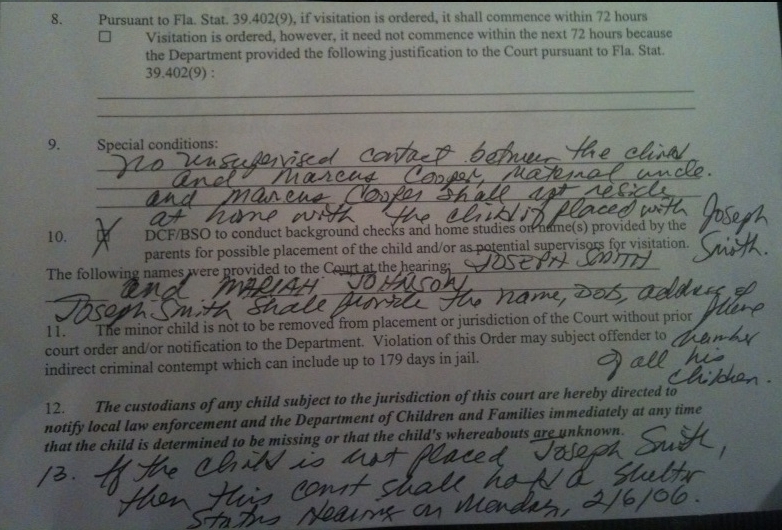 8. Pursuant to Fla. Stat. 39.402(9), if visitation is ordered, it shall commence within 72 hours
Visitation is ordered, however, it need not commence within the next 72 hours because
the Department provided the following justification to the Court pursuant to Fla. Stat.
39.402(9) :
9. Special conditions:
No unsupervised contact between the child
and Marcus Cooper, maternal uncle.
and Marcus Cooper shall not reside
at home with the child if placed with Joseph
Smith.
10. DCF/BSO to conduct background checks and home studies on name(s) provided by the
parents for possible placement of the child and/or as potential supervisors for visitation.
The following names were provided to the Court at the hearing: JOSEPH SMITH
and MARIAH JOHNSON
Joseph Smith shall provide the name, DOB, address &
phone
number
of all his
children.
11. The minor child is not to be removed from placement or jurisdiction of the Court without prior
court order and/or notification to the Department. Violation of this Order may subject offender to
indirect criminal contempt which can include up to 179 days in jail.
12. The custodians of any child subject to the jurisdiction of this court are hereby directed to
notify local law enforcement and the Department of Children and Families immediately at any time
that the child is determined to be missing or that the child's whereabouts are unknown.
13. If the child is not placed Joseph Smith,
then this court shall hold a Shelter
Status Hearing on Monday, 2/6/06.